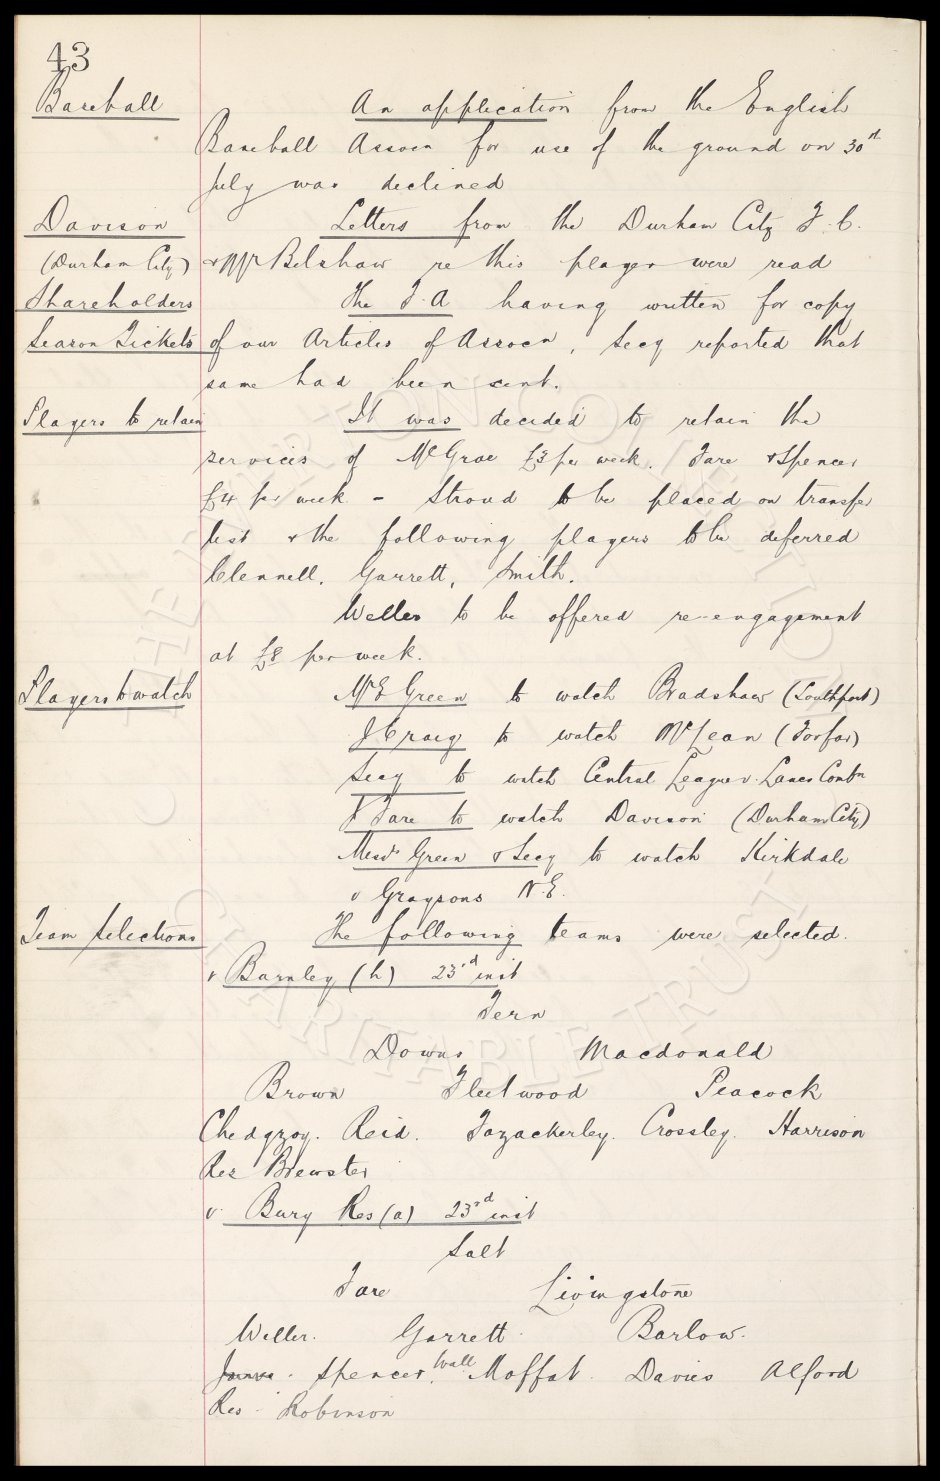 43
Baseball An application from the English
Baseball Assocn for use of the ground on 30th
July was declined
Davison Letters from the Durham City F.C.
(Durham City) & Mr Belshaw re this player were read
Shareholders The F.A having written for copy
Season Tickets of our Articles of Assocn, Secy reported that
same had been sent.
Players to retain It was decided to retain the
services of McGrae £3 per week. Fare & Spencer
£4 per week - Stroud to be placed on transfer
list & the following players to be deferred
Clennell, Garrett, Smith.
Weller to be offered re-engagement
at £8 per week.
Players to watch Mr E Green to watch Bradshaw (Southport)
J Craig to watch McLean (Forfar)
Secy to watch Central League v. Lancs Combn
J Fare to watch Davison (Durham City)
Messrs Green & Secy to watch Kirkdale
v Graysons N.E.
Team Selections The following teams were selected.
v Barnley (h) 23rd inst
Fern
Downs Macdonald
Brown Fleetwood Peacock
Chedgzoy. Reid. Fazackerley. Crossley. Harrison
Res Brewster
v. Bury Res (a) 23rd inst
Salt
Fare Livingstone
Weller. Garrett. Barlow.
Spencer. Wall Moffat. Davies Alford
Res. Robinson
THE EVERTON COLLECTION
CHARITABLE TRUST